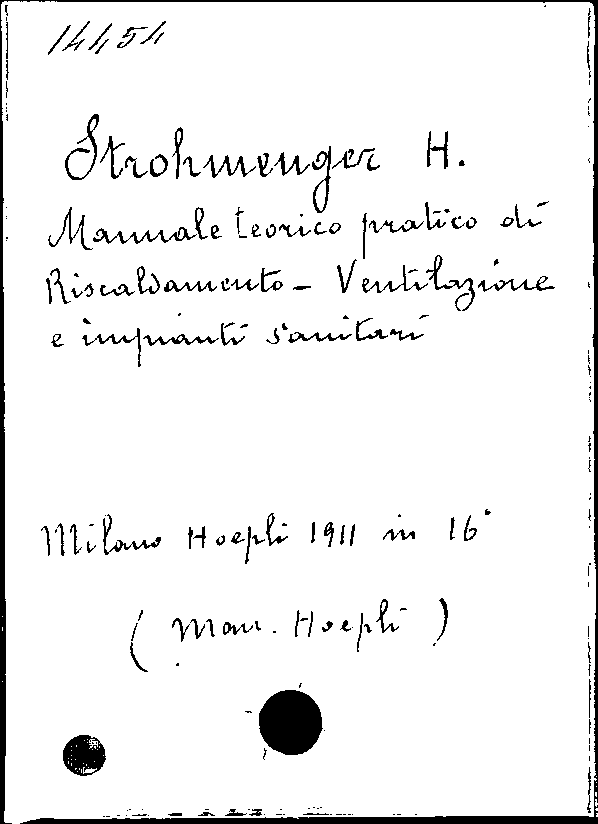 14454
Strohmenger H.
Manuale teorico pratico di
Riscaldamento - Ventilazione
e impianti sanitari
Milano Hoepli 1911 in 16°
( Man. Hoepli )